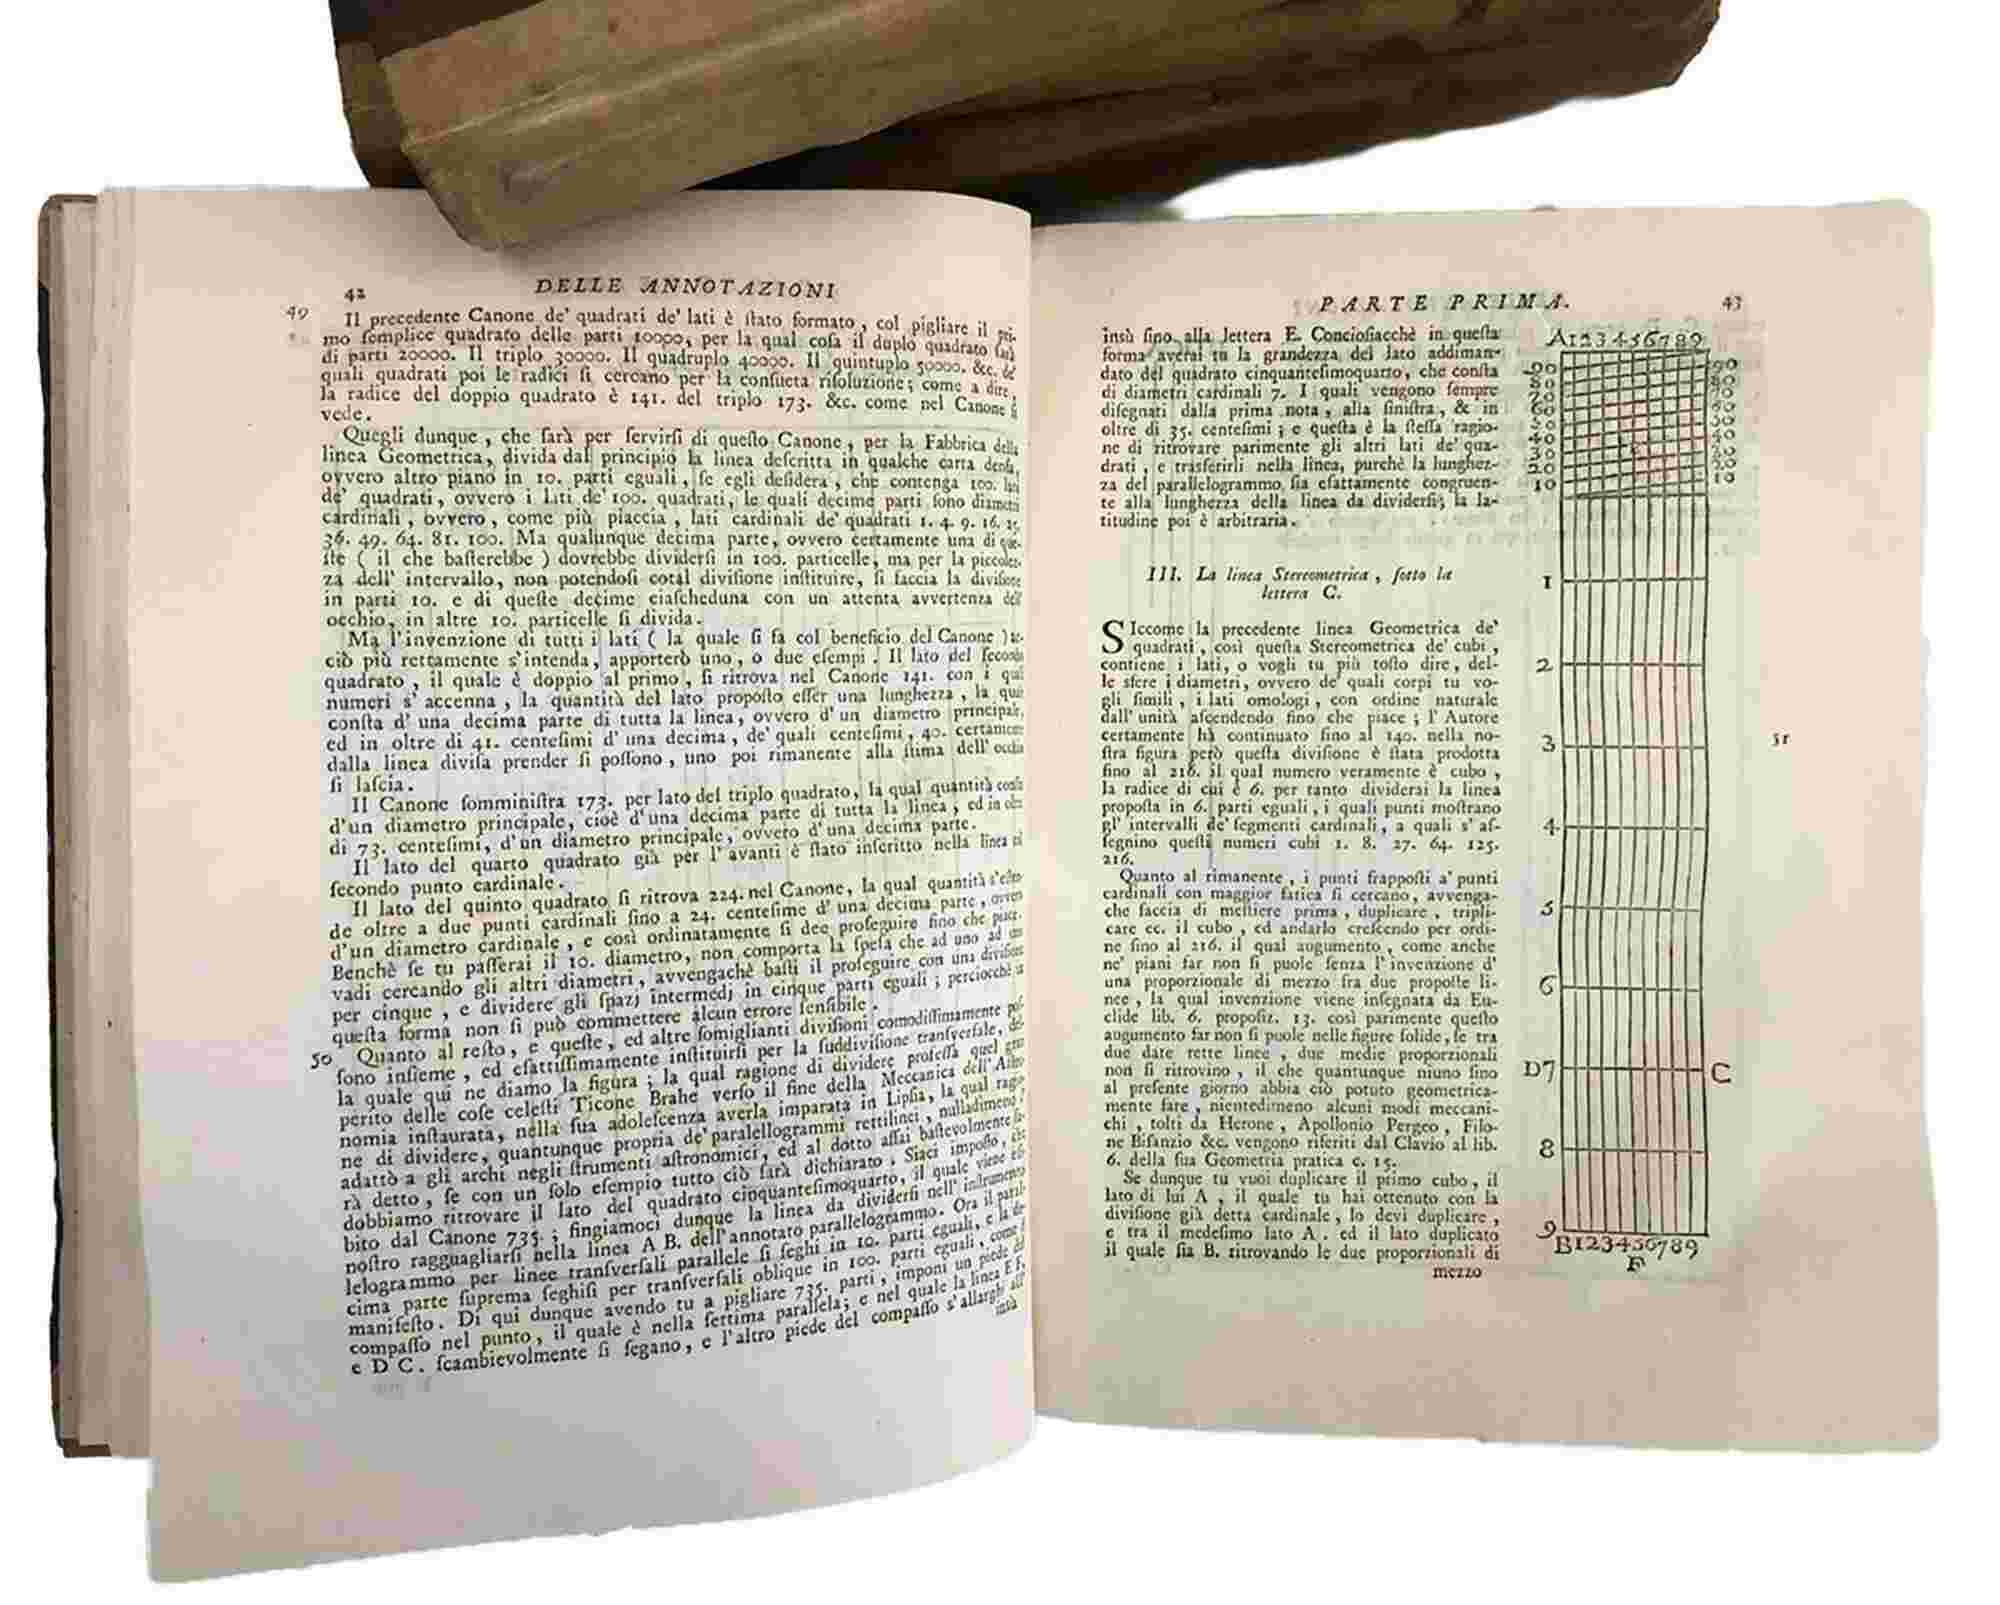 42
DELLE ANNOTAZIONI
49
Il precedente Canone de' quadrati de' lati è ſtato formato, col pigliare il pri-
mo ſemplice quadrato delle parti 10000, per la qual coſa il duplo quadrato ſarà
di parti 20000. Il triplo 30000. Il quadruplo 40000. Il quintuplo 50000. &c. de'
quali quadrati poi le radici ſi cercano per la conſueta riſoluzione; come a dire,
la radice del doppio quadrato è 141. del triplo 173. &c. come nel Canone ſi
vede.
Quegli dunque, che ſarà per ſervirſi di queſto Canone, per la Fabbrica della
linea Geometrica, divida dal principio la linea deſcritta in qualche carta denſa,
ovvero altro piano in 10. parti eguali, ſe egli deſidera, che contenga 100. lati
de' quadrati, ovvero i lati de' 100. quadrati, le quali decime parti ſono diametri
cardinali, ovvero, come più piaccia, lati cardinali de' quadrati 1. 4. 9. 16. 25.
36. 49. 64. 81. 100. Ma qualunque decima parte, ovvero certamente una di que-
ſte ( il che baſterebbe ) dovrebbe dividerſi in 100. particelle, ma per la piccolez-
za dell' intervallo, non potendoſi cotal diviſione inſtituire, ſi faccia la diviſione
in parti 10. e di queſte decime ciaſcheduna con un attenta avvertenza dell'
occhio, in altre 10. particelle ſi divida.
Ma l'invenzione di tutti i lati ( la quale ſi fa col beneficio del Canone ) ac-
ciò più rettamente s'intenda, apporterò uno, o due eſempi. Il lato del ſecondo
quadrato, il quale è doppio al primo, ſi ritrova nel Canone 141. con i quai
numeri s'accenna, la quantità del lato propoſto eſſer una lunghezza, la quai
conſta d'una decima parte di tutta la linea, ovvero d'un diametro principale,
ed in oltre di 41. centeſimi d'una decima, de' quali centeſimi, 40. certamente
dalla linea diviſa prender ſi poſſono, uno poi rimanente alla ſtima dell' occhio
ſi laſcia.
Il Canone ſomminiſtra 173. per lato del triplo quadrato, la qual quantità conſta
d'un diametro principale, cioè d'una decima parte di tutta la linea, ed in oltre
di 73. centeſimi, d'un diametro principale, ovvero d'una decima parte.
Il lato del quarto quadrato già per l'avanti è ſtato inſcritto nella linea al
ſecondo punto cardinale.
Il lato del quinto quadrato ſi ritrova 224. nel Canone, la qual quantità s'eſten-
de oltre a due punti cardinali fino a 24. centeſime d'una decima parte, ovvero
d'un diametro cardinale, e così ordinatamente ſi dee proſeguire fino che piace.
Benchè ſe tu paſſerai il 10. diametro, non comporta la ſpeſa che ad uno ad uno
vadi cercando gli altri diametri, avvengachè baſti il proſeguire con una diviſione
per cinque, e dividere gli ſpazj intermedj in cinque parti eguali; perciocchè in
queſta forma non ſi può commettere alcun errore ſenſibile.
50
Quanto al reſto, e queſte, ed altre ſomiglianti diviſioni comodiſſimamente poſ-
ſono inſieme, ed eſattiſſimamente inſtituirſi per la ſuddiviſione tranſverſale, del-
la quale qui ne diamo la figura; la qual ragione di dividere profeſſa quel gran
perito delle coſe celeſti Ticone Brahe verſo il fine della Meccanica dell' Aſtro-
nomia inſtaurata, nella ſua adoleſcenza averla imparata in Lipſia, la qual ragio-
ne di dividere, quantunque propria de' paralellogrammi rettilinei, nulladimeno
adattò a gli archi negli ſtrumenti aſtronomici, ed al dotto aſſai baſtevolmente ſa-
rà detto, ſe con un ſolo eſempio tutto ciò ſarà dichiarato. Siaci impoſto, che
dobbiamo ritrovare il lato del quadrato cinquanteſimoquarto, il quale viene eſi-
bito dal Canone 735.; fingiamoci dunque la linea da dividerſi nell' inſtrumento
noſtro ragguagliarſi nella linea A B. dell'annotato parallelogrammo. Ora il paral-
lelogrammo per linee tranſverſali parallele ſi ſeghi in 10. parti eguali, e la de-
cima parte ſuprema ſeghiſi per tranſverſali oblique in 100. parti eguali, come è
manifeſto. Di qui dunque avendo tu a pigliare 735. parti, imponi un piede del
compaſſo nel punto, il quale è nella ſettima parallela; e nel quale la linea E F.
e D C. ſcambievolmente ſi ſegano, e l'altro piede del compaſſo s'allarghi all'
insù
PARTE PRIMA.
43
insù fino alla lettera E. Concioſiacchè in queſta
forma averai tu la grandezza del lato addiman-
dato del quadrato cinquanteſimoquarto, che conſta
di diametri cardinali 7. I quali vengono ſempre
diſegnati dalla prima nota, alla ſiniſtra, & in
oltre di 35. centeſimi; e queſta è la ſteſſa ragio-
ne di ritrovare parimente gli altri lati de' qua-
drati, e trasferirli nella linea, purchè la lunghez-
za del parallelogrammo ſia eſattamente congruen-
te alla lunghezza della linea da dividerſi; la la-
titudine poi è arbitraria.
III. La linea Stereometrica, ſotto la
lettera C.
SIccome la precedente linea Geometrica de'
quadrati, così queſta Stereometrica de' cubi,
contiene i lati, o vogli tu più toſto dire, del-
le sfere i diametri, ovvero de' quali corpi tu vo-
gli ſimili, i lati omologi, con ordine naturale
dall' unità aſcendendo fino che piace; l'Autore
certamente ha continuato fino al 140. nella no-
ſtra figura però queſta diviſione è ſtata prodotta
fino al 216. il qual numero veramente è cubo,
la radice di cui è 6. per tanto dividerai la linea
propoſta in 6. parti eguali, i quali punti moſtrano
gl' intervalli de' ſegmenti cardinali, a quali s' aſ-
ſegnino queſti numeri cubi 1. 8. 27. 64. 125.
216.
Quanto al rimanente, i punti frappoſti a' punti
cardinali con maggior fatica ſi cercano, avvenga-
che faccia di meſtiere prima, duplicare, tripli-
care ec. il cubo, ed andarlo creſcendo per ordi-
ne fino al 216. il qual augumento, come anche
ne' piani far non ſi puole ſenza l'invenzione d'
una proporzionale di mezzo fra due propoſte li-
nee, la qual invenzione viene inſegnata da Eu-
clide lib. 6. propoſiz. 13. così parimente queſto
augumento far non ſi puole nelle figure ſolide, ſe tra
due date rette linee, due medie proporzionali
non ſi ritrovino, il che quantunque niuno fino
al preſente giorno abbia ciò potuto geometrica-
mente fare, nientedimeno alcuni modi meccani-
chi, tolti da Herone, Apollonio Pergeo, Filo-
ne Biſanzio &c. vengono riferiti dal Clavio al lib.
6. della ſua Geometria pratica c. 15.
Se dunque tu vuoi duplicare il primo cubo, il
lato di lui A, il quale tu hai ottenuto con la
diviſione già detta cardinale, lo devi duplicare,
e tra il medeſimo lato A. ed il lato duplicato
il quale ſia B. ritrovando le due proporzionali di
mezzo
51
A123456789
90 90
80 80
70 70
60 60
50 50
40 40
30 30
20 20
10 10
E
1
2
3
4
5
6
D7 C
8
9
B123456789
F